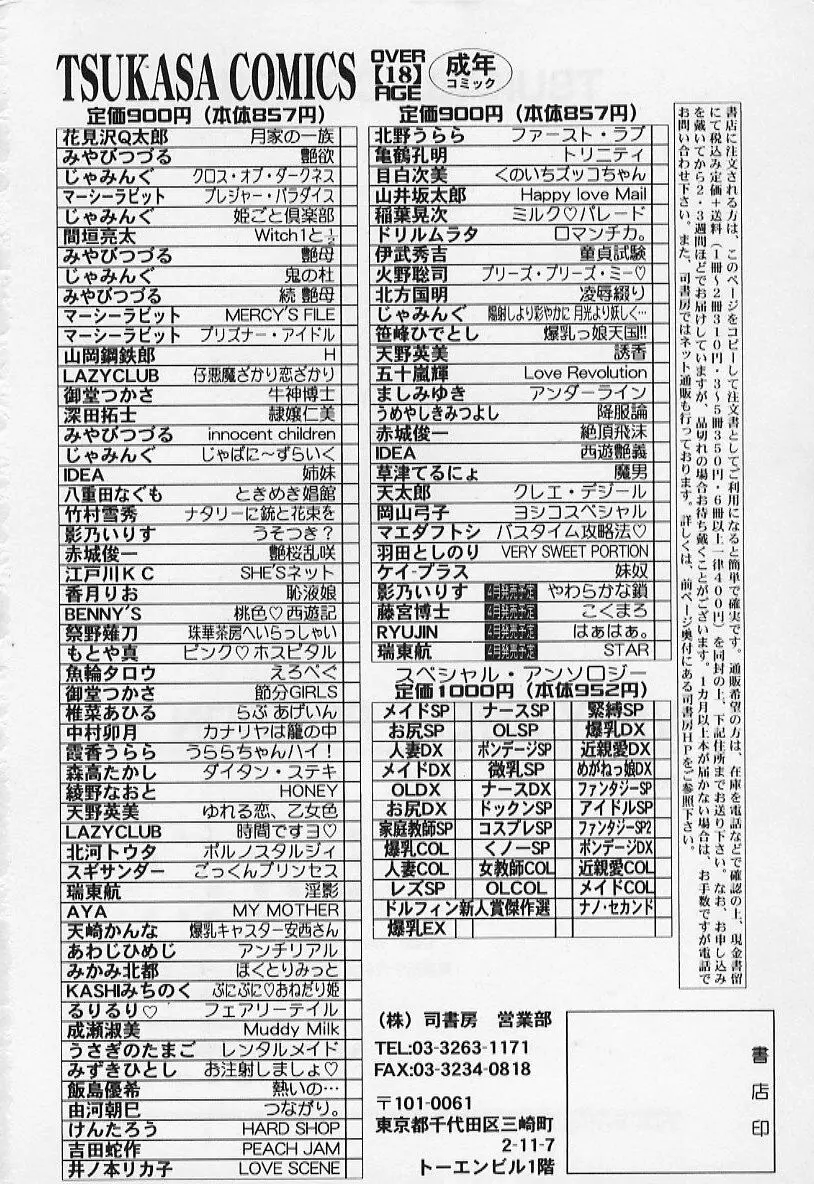 TSUKASA COMICS
OVER
【18】
AGE
成年
コミック
定価900円（本体857円）
花見沢Q太郎 月家の一族
みやびつづる 艶欲
じゃみんぐ クロス・オブ・ダークネス
マーシーラビット プレジャー・パラダイス
じゃみんぐ 姫ごと倶楽部
間垣亮太 Witch1と½
みやびつづる 艶母
じゃみんぐ 鬼の杜
みやびつづる 続 艶母
マーシーラビット MERCY'S FILE
マーシーラビット プリズナー・アイドル
山岡鋼鉄郎 H
LAZYCLUB 仔悪魔ざかり恋ざかり
御堂つかさ 牛神博士
深田拓士 隷嬢仁美
みやびつづる innocent children
じゃみんぐ じゃばに〜ずらいく
IDEA 姉妹
八重田なぐも ときめき娼館
竹村雪秀 ナタリーに銃と花束を
影乃いりす うそつき？
赤城俊一 艶桜乱咲
江戸川KC SHE'Sネット
香月りお 恥液娘
BENNY'S 桃色♡西遊記
祭野薙刀 珠華茶房へいらっしゃい
もとや真 ピンク♡ホスピタル
魚輪タロウ えろぺぐ
御堂つかさ 節分GIRLS
椎菜あひる らぶ あげいん
中村卯月 カナリヤは籠の中
霞香うらら うららちゃんハイ！
森高たかし ダイタン・ステキ
綾野なおと HONEY
天野英美 ゆれる恋、乙女色
LAZYCLUB 時間ですヨ♡
北河トウタ ポルノスタルジィ
スギサンダー ごっくんプリンセス
瑞東航 淫影
AYA MY MOTHER
天崎かんな 爆乳キャスター安西さん
あわじひめじ アンチリアル
みかみ北都 ほくとりみっと
KASHIみちのく ぷにぷに♡おねだり姫
るりるり♡ フェアリーテイル
成瀬淑美 Muddy Milk
うさぎのたまご レンタルメイド
みずきひとし お注射しましょ♡
飯島優希 熱いの…
由河朝巳 つながり。
けんたろう HARD SHOP
吉田蛇作 PEACH JAM
井ノ本リカ子 LOVE SCENE
定価900円（本体857円）
北野うらら ファースト・ラブ
亀鶴孔明 トリニティ
目白次美 くのいちズッコちゃん
山井坂太郎 Happy love Mail
稲葉晃次 ミルク♡パレード
ドリルムラタ ロマンチカ。
伊武秀吉 童貞試験
火野聡司 プリーズ・プリーズ・ミー♡
北方国明 凌辱綴り
じゃみんぐ 陽射しより彩やかに 月光より妖しく…
笹峰ひでとし 爆乳っ娘天国!!
天野英美 誘香
五十嵐輝 Love Revolution
ましみゆき アンダーライン
うめやしきみつよし 降服論
赤城俊一 絶頂飛沫
IDEA 西遊艶義
草津てるにょ 魔男
天太郎 クレエ・デジール
岡山弓子 ヨシコスペシャル
マエダフトシ バスタイム攻略法♡
羽田としのり VERY SWEET PORTION
ケイ-プラス 妹奴
影乃いりす 4月発売予定 やわらかな鎖
藤宮博士 4月発売予定 こくまろ
RYUJIN 4月発売予定 はぁはぁ。
瑞東航 4月発売予定 STAR
スペシャル・アンソロジー
定価1000円（本体952円）
メイドSP ナースSP 緊縛SP
お尻SP OLSP 爆乳DX
人妻DX ボンデージSP 近親愛DX
メイドDX 微乳SP めがねっ娘DX
OLDX ナースDX ファンタジーSP
お尻DX ドックンSP アイドルSP
家庭教師SP コスプレSP ファンタジーSP2
爆乳COL くノ一SP ボンデージDX
人妻COL 女教師COL 近親愛COL
レズSP OLCOL メイドCOL
ドルフィン新人賞傑作選 ナノ・セカンド
爆乳EX
書店に注文される方は、このページをコピーして注文書としてご利用になると簡単で確実です。通販希望の方は、在庫を電話などで確認の上、現金書留
にて税込み定価＋送料（1冊〜2冊310円・3〜5冊350円・6冊以上一律400円）を同封の上、下記住所までお送り下さい。なお、お申し込み
を戴いてから2・3週間ほどでお届けしていますが、品切れの場合お待ち戴くことがございます。1カ月以上本が届かない場合は、お手数ですが電話で
お問い合わせ下さい。また、司書房ではネット通販も行っております。詳しくは、前ページ奥付にある司書房HPをご参照下さい。
（株）司書房 営業部
TEL:03-3263-1171
FAX:03-3234-0818
〒101-0061
東京都千代田区三崎町
2-11-7
トーエンビル1階
書店印